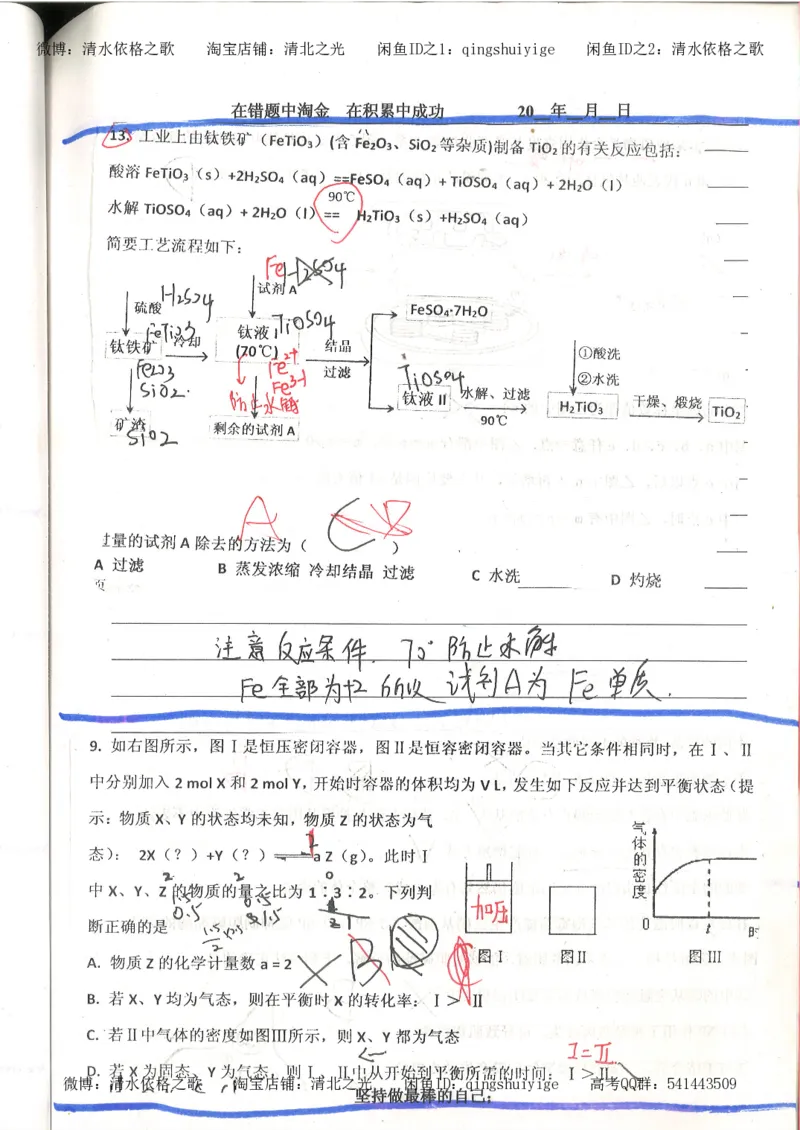 微博：清水依格之歌 淘宝店铺：清北之光 闲鱼ID之1：qingshuiyige 闲鱼ID之2：清水依格之歌
在错题中淘金 在积累中成功 20__年__月__日
13. 工业上由钛铁矿（FeTiO₃）(含 Fe₂O₃、SiO₂ 等杂质)制备 TiO₂ 的有关反应包括：
酸溶 FeTiO₃（s）+2H₂SO₄（aq）==FeSO₄（aq）+ TiOSO₄（aq）+ 2H₂O（l）
90℃
水解 TiOSO₄（aq）+ 2H₂O（l）== H₂TiO₃（s）+H₂SO₄（aq）
简要工艺流程如下：
Fe H₂SO₄
试剂 A
硫酸 H₂SO₄
FeSO₄·7H₂O
FeTiO₃ 冷却 钛液 I TiOSO₄ 结晶
钛铁矿 (70℃) 过滤
①酸洗
②水洗
Fe₂O₃ Fe²⁺
SiO₂ Fe³⁺
防止水解
TiOSO₄
钛液 II 水解、过滤 H₂TiO₃ 干燥、煅烧 TiO₂
90℃
矿渣 剩余的试剂 A
SiO₂
A C B
过量的试剂 A 除去的方法为（ ）
A 过滤 B 蒸发浓缩 冷却结晶 过滤 C 水洗 D 灼烧
页
注意反应条件. 70° 防止水解
Fe全部为+2 所以 试剂A为 Fe单质.
9. 如右图所示，图Ⅰ是恒压密闭容器，图Ⅱ是恒容密闭容器。当其它条件相同时，在Ⅰ、Ⅱ
中分别加入 2 mol X 和 2 mol Y，开始时容器的体积均为 V L，发生如下反应并达到平衡状态（提
示：物质 X、Y 的状态均未知，物质 Z 的状态为气
态）： 2X（？）+Y（？） a Z（g）。此时Ⅰ
2 2 0
中 X、Y、Z 的物质的量之比为 1∶3∶2。下列判
1.5 0.5 1
0.5 1.5
断正确的是
A. 物质 Z 的化学计量数 a = 2
B
加压
图Ⅰ 图Ⅱ 图Ⅲ
气体的密度
0 t 时
B. 若 X、Y 均为气态，则在平衡时 X 的转化率：Ⅰ＞ Ⅱ
C. 若Ⅱ中气体的密度如图Ⅲ所示，则 X、Y 都为气态
I=II
D. 若 X 为固态、Y 为气态，则Ⅰ、Ⅱ中从开始到平衡所需的时间：Ⅰ＞Ⅱ
微博：清水依格之歌 淘宝店铺：清北之光 闲鱼ID：qingshuiyige 高考QQ群：541443509
坚持做最棒的自己；